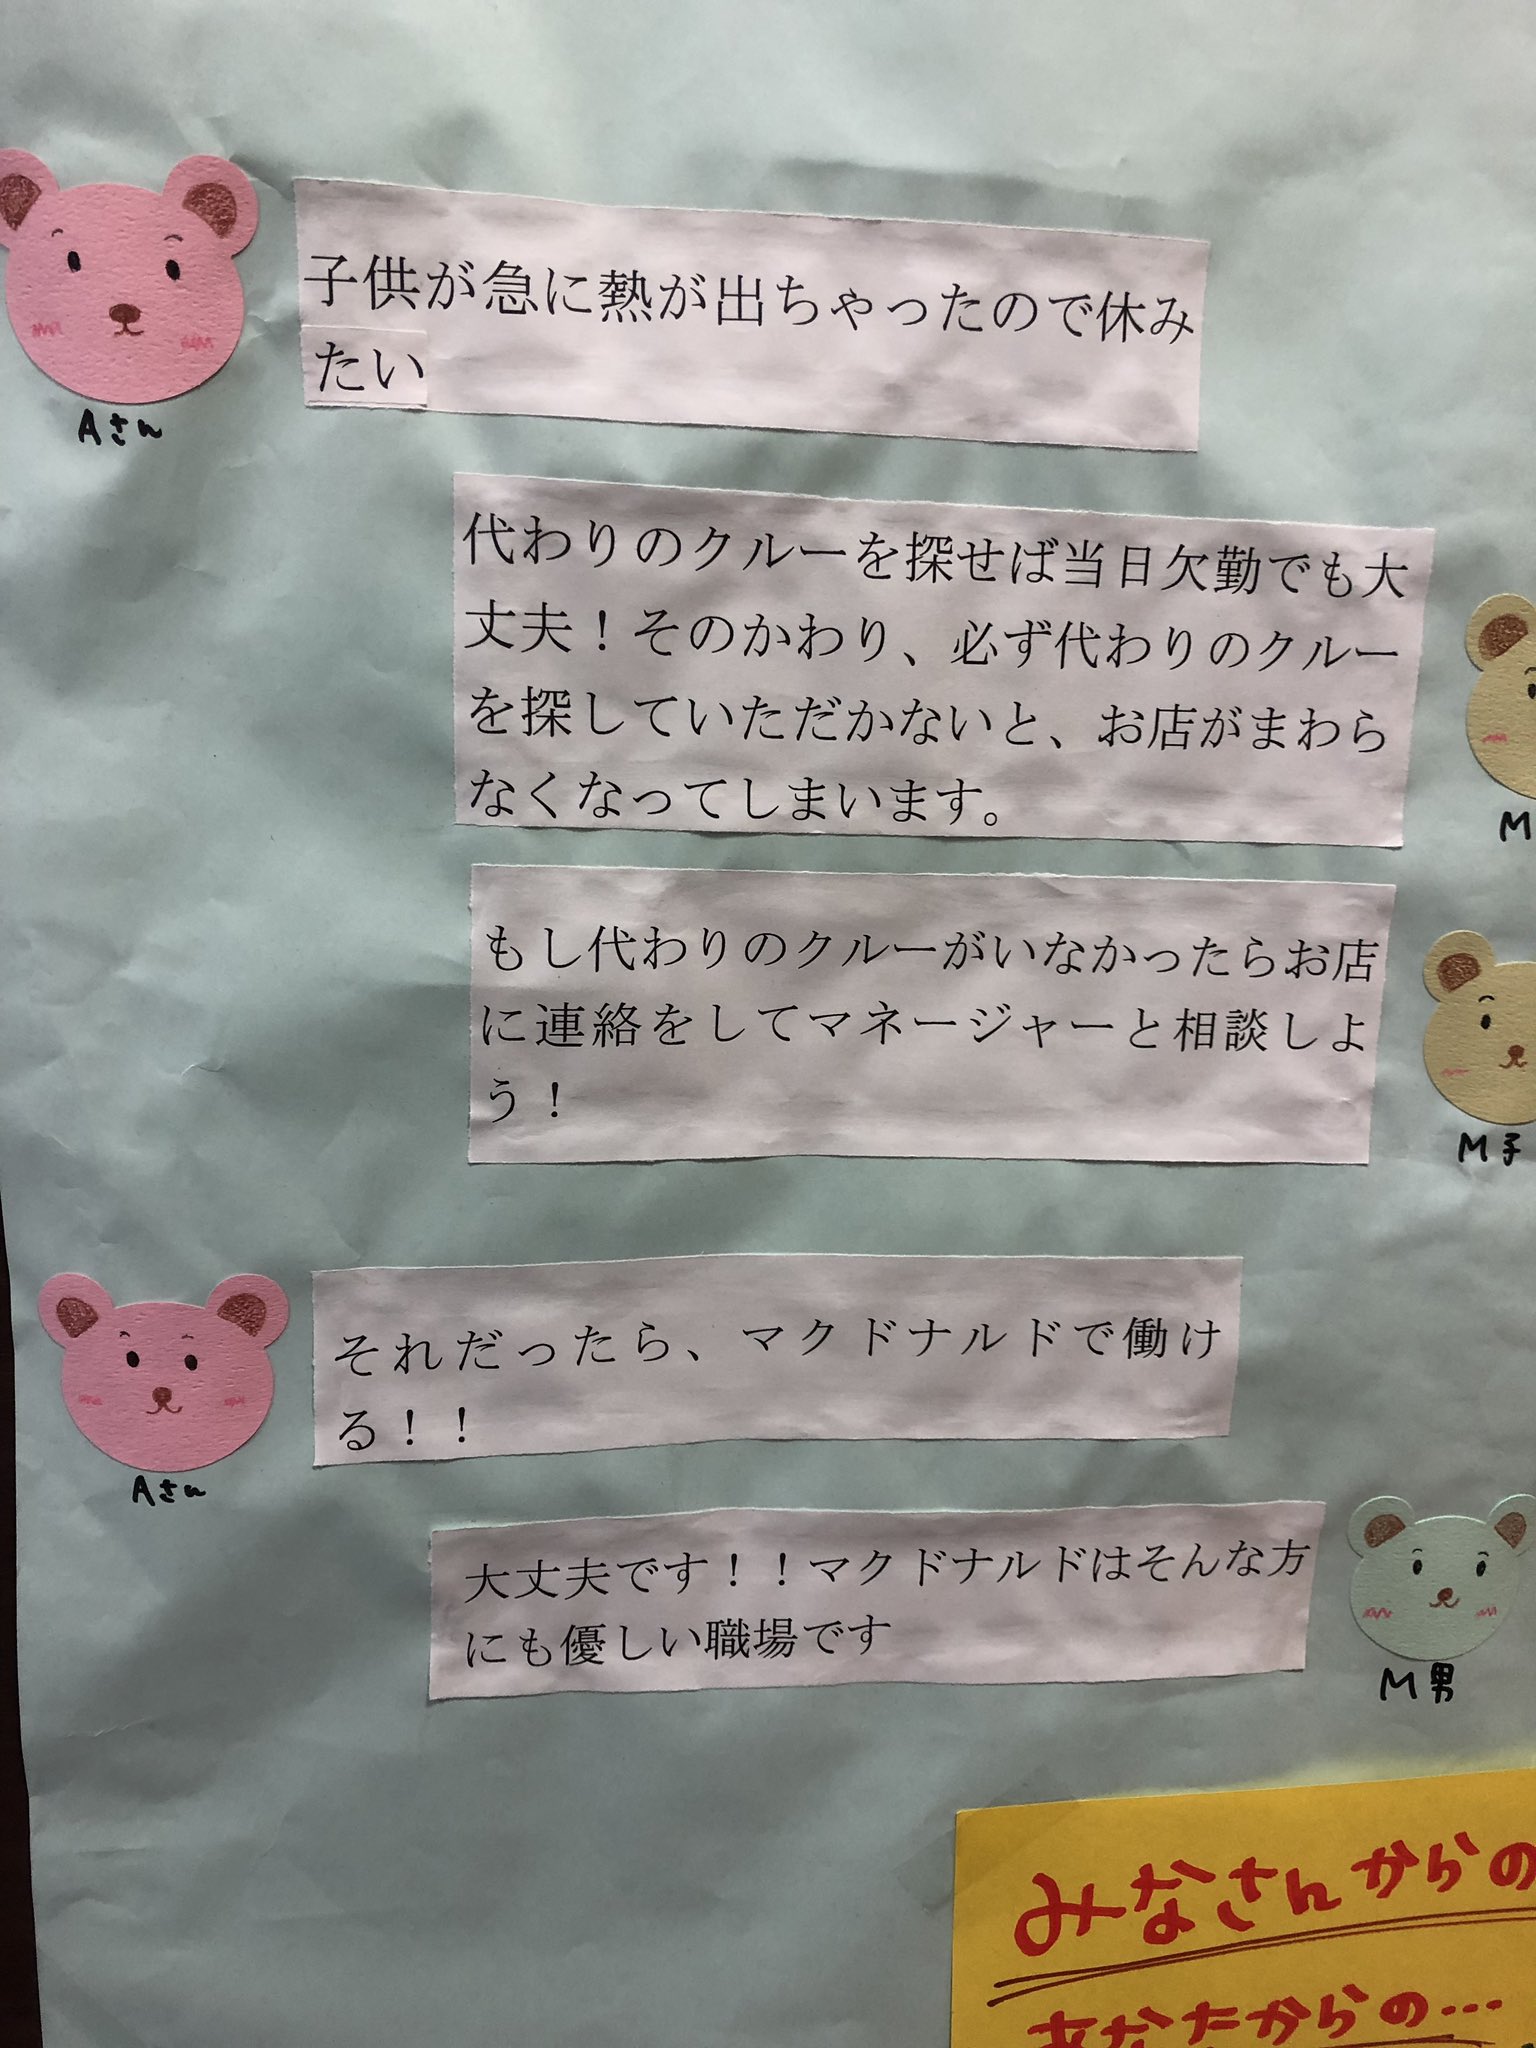 子供が急に熱が出ちゃったので休み
たい
Aさん
代わりのクルーを探せば当日欠勤でも大
丈夫！そのかわり、必ず代わりのクルー
を探していただかないと、お店がまわら
なくなってしまいます。
M
もし代わりのクルーがいなかったらお店
に連絡をしてマネージャーと相談しよ
う！
M子
それだったら、マクドナルドで働け
る！！
Aさん
大丈夫です！！マクドナルドはそんな方
にも優しい職場です
M男
みなさんからの
あなたからの…